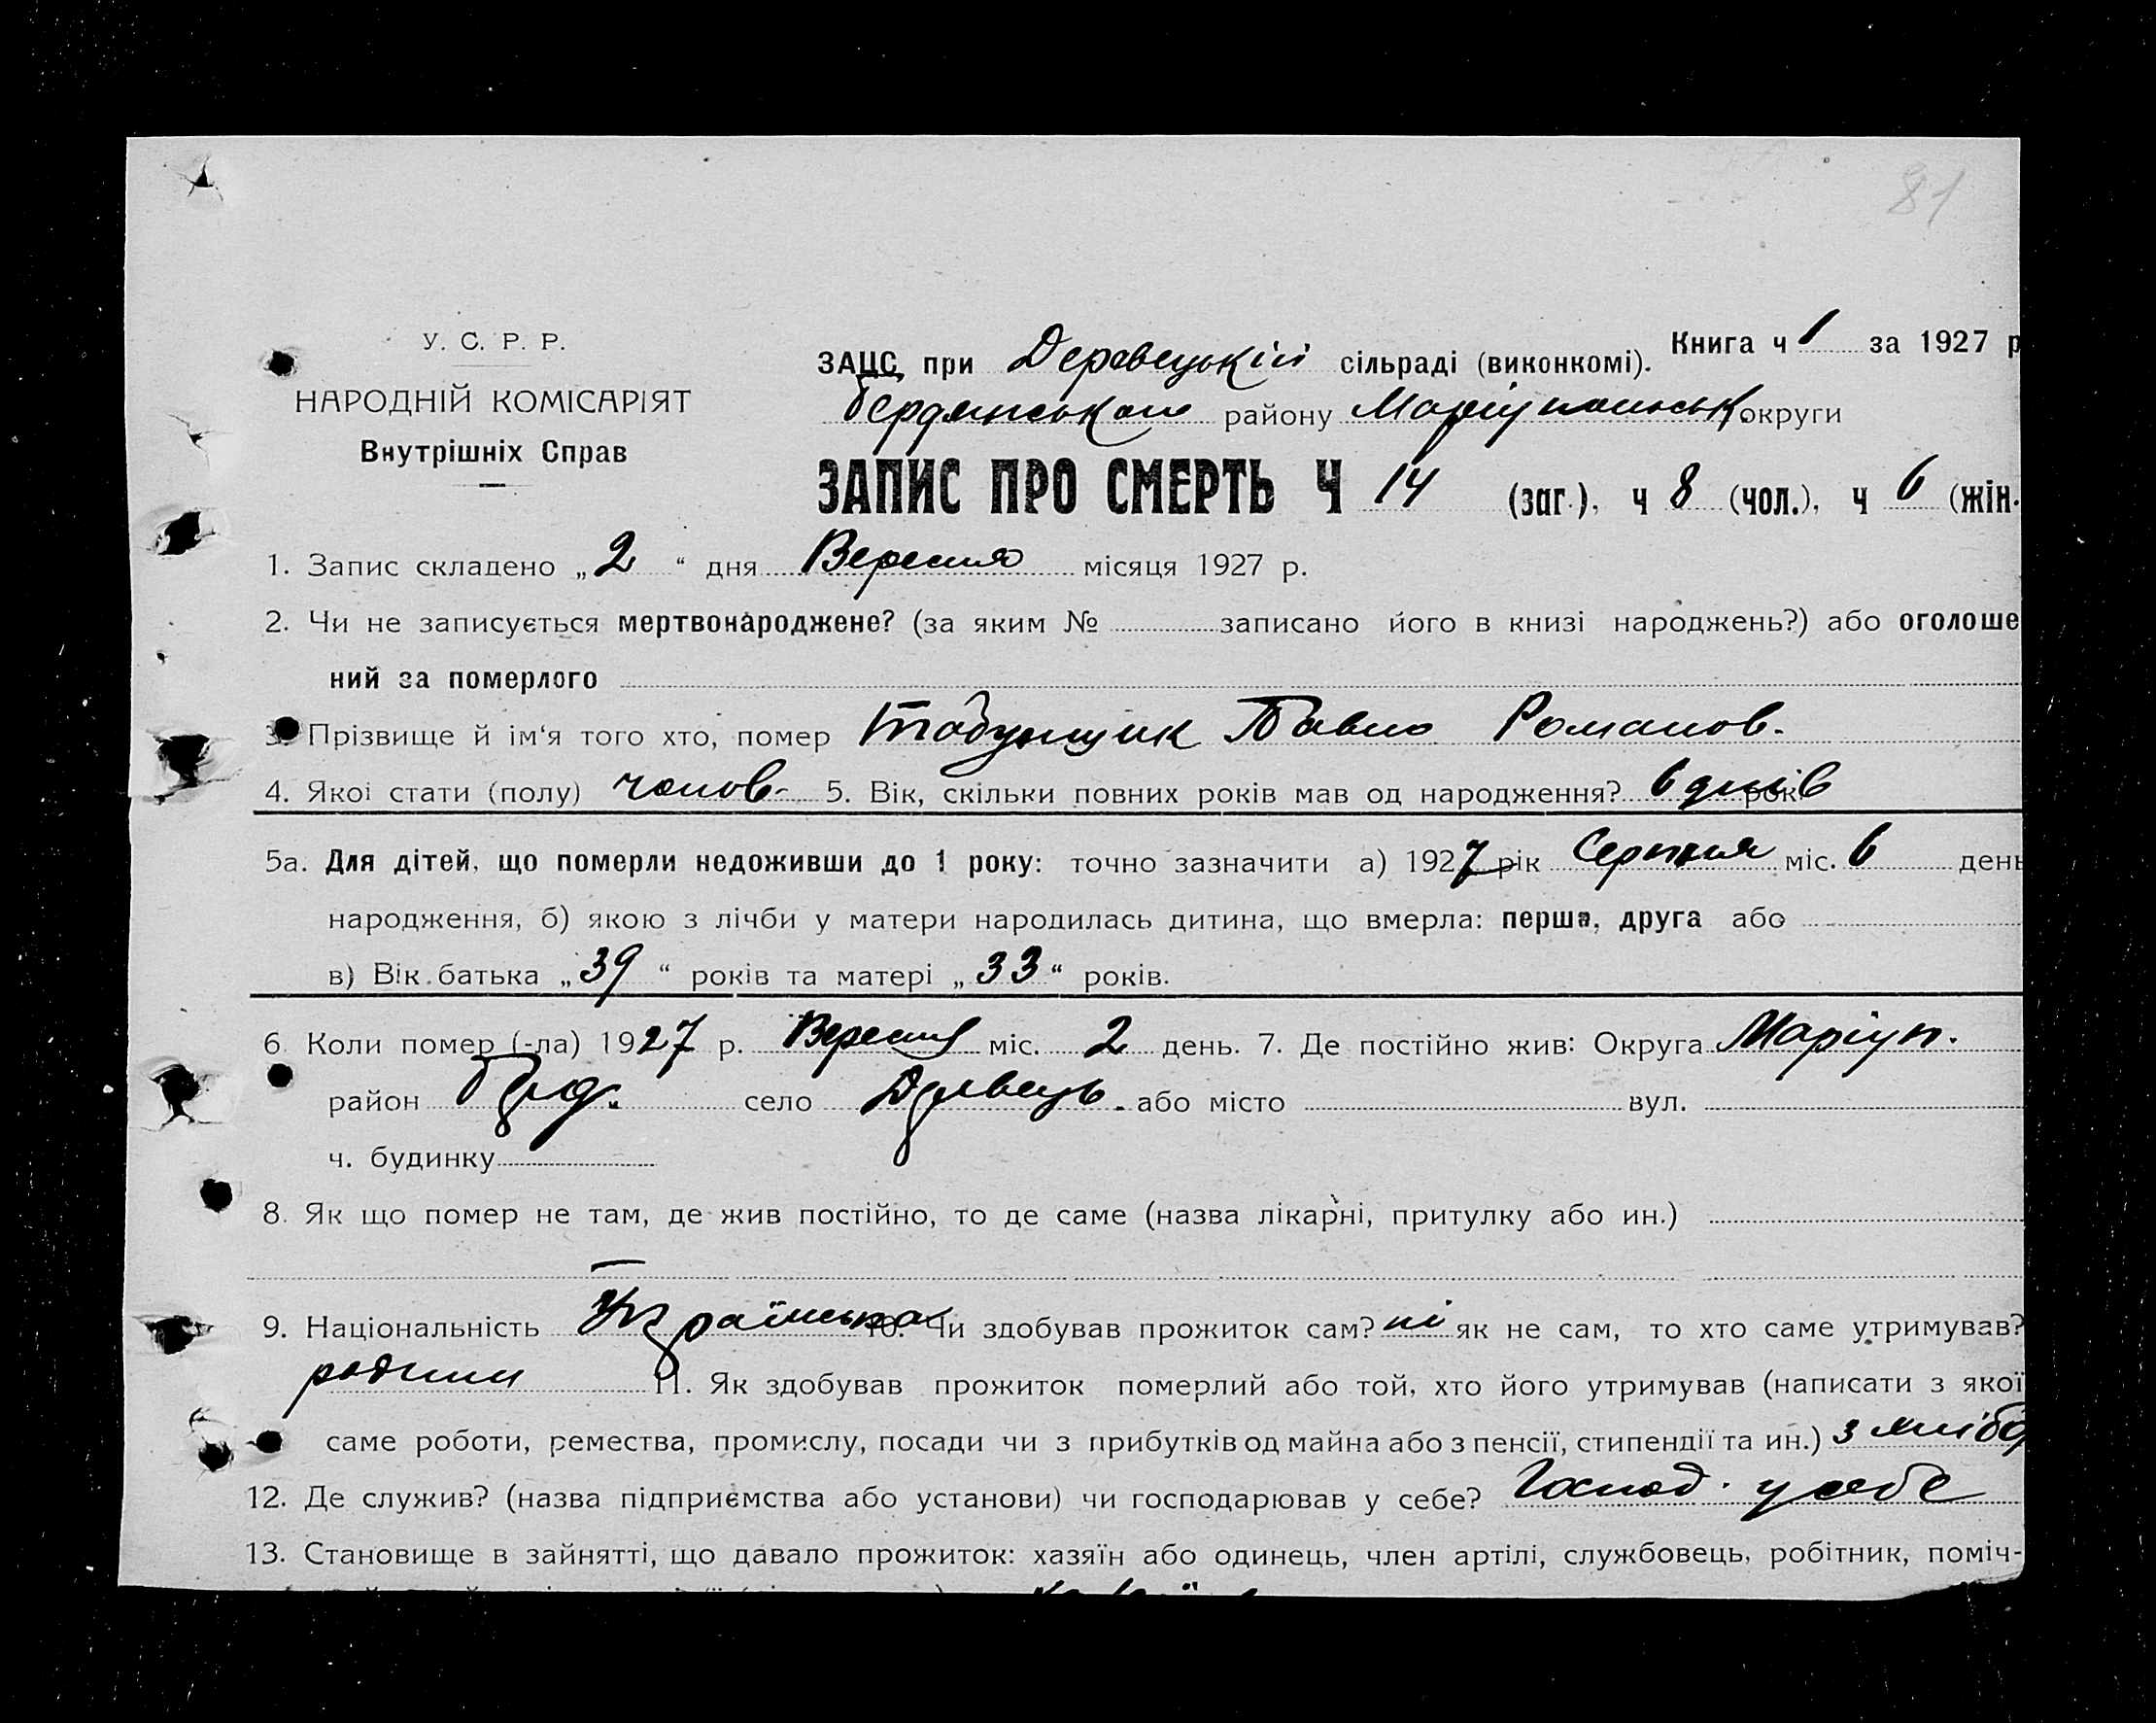 81
У. С. Р. Р.
НАРОДНІЙ КОМІСАРІЯТ
Внутрішніх Справ
Книга ч 1 за 1927 р
ЗАЦС при Деревецькій сільраді (виконкомі).
бердянського району Маріупольськ округи
ЗАПИС ПРО СМЕРТЬ Ч 14 (заг.), ч 8 (чол.), ч 6 (жін.
1. Запис складено „2“ дня Вересня місяця 1927 р.
2. Чи не записується мертвонароджене? (за яким № записано його в книзі народжень?) або оголоше
ний за померлого
3. Прізвище й ім‘я того хто, помер Табунщик Павло Романов.
4. Якої стати (полу) чолов. 5. Вік, скільки повних років мав од народження? 6 днів рок
5а. Для дітей, що померли недоживши до 1 року: точно зазначити а) 1927 рік Серпня міс. 6 день
народження, б) якою з лічби у матери народилась дитина, що вмерла: перша, друга або
в) Вік батька „39“ років та матері „33“ років.
6. Коли помер (-ла) 1927 р. Вересня міс. 2 день. 7. Де постійно жив: Округа Маріуп.
район Берд. село або місто вул.
ч. будинку
8. Як що помер не там, де жив постійно, то де саме (назва лікарні, притулку або ин.)
9. Національність Українська 10. Чи здобував прожиток сам? ні як не сам, то хто саме утримував?
родини 11. Як здобував прожиток померлий або той, хто його утримував (написати з якої
саме роботи, ремества, промислу, посади чи з прибутків од майна або з пенсії, стипендії та ин.) з
12. Де служив? (назва підприємства або установи) чи господарював у себе? Господ. у себе
13. Становище в зайнятті, що давало прожиток: хазяїн або одинець, член артілі, службовець, робітник, поміч-